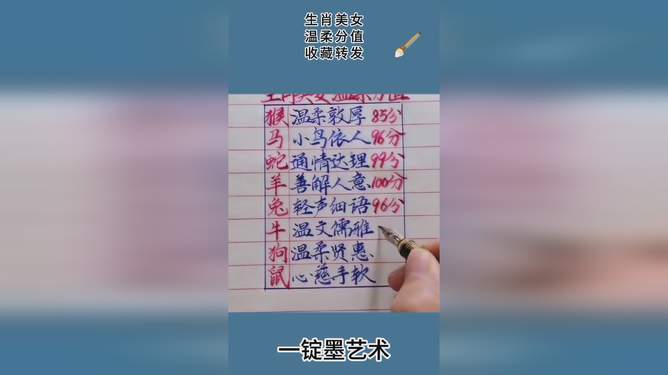 生肖美女
温柔分值
收藏转发
猴 温柔敦厚 85分
马 小鸟依人 96分
蛇 通情达理 99分
羊 善解人意 100分
兔 轻声细语 96分
牛 温文儒雅
狗 温柔贤惠
鼠 心慈手软
一锭墨艺术